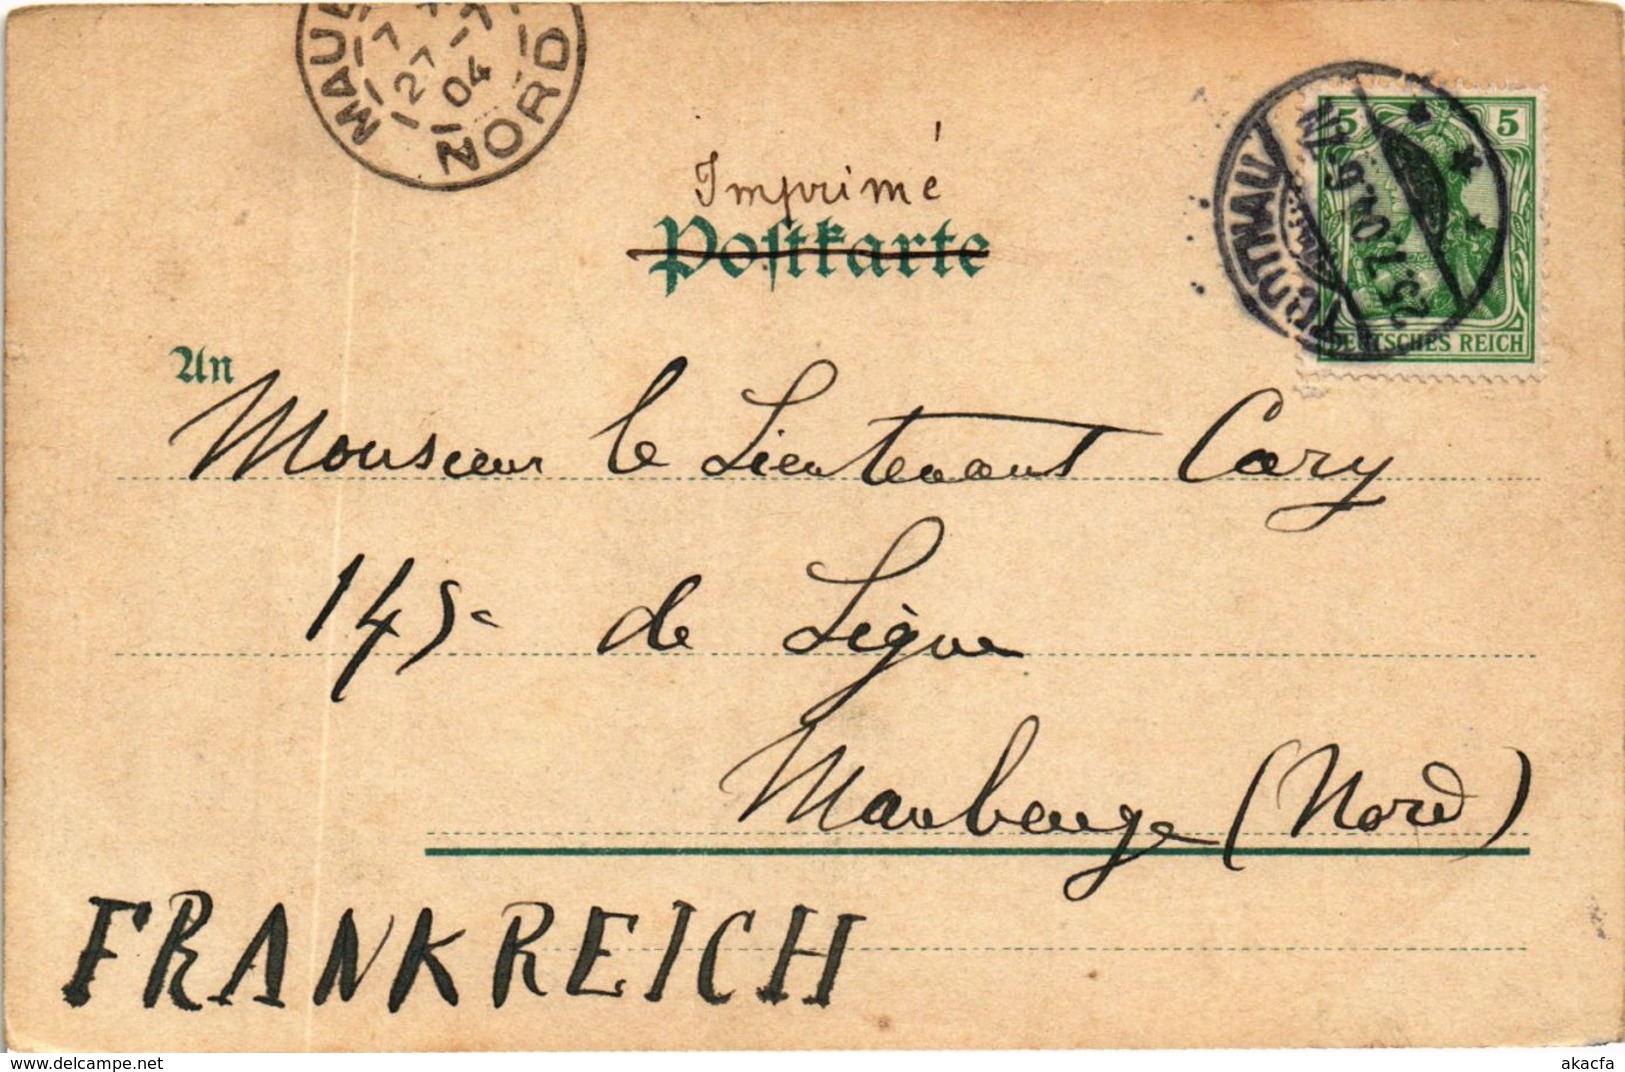 MAUB
27 - 7
04
NORD
Imprimé
Postkarte
5 5
25.7.04.
DEUTSCHES REICH
An
Monsieur le Lieutenant Cary
145e de Ligne
Maubeuge (Nord)
FRANKREICH
akacfa
www.delcampe.net